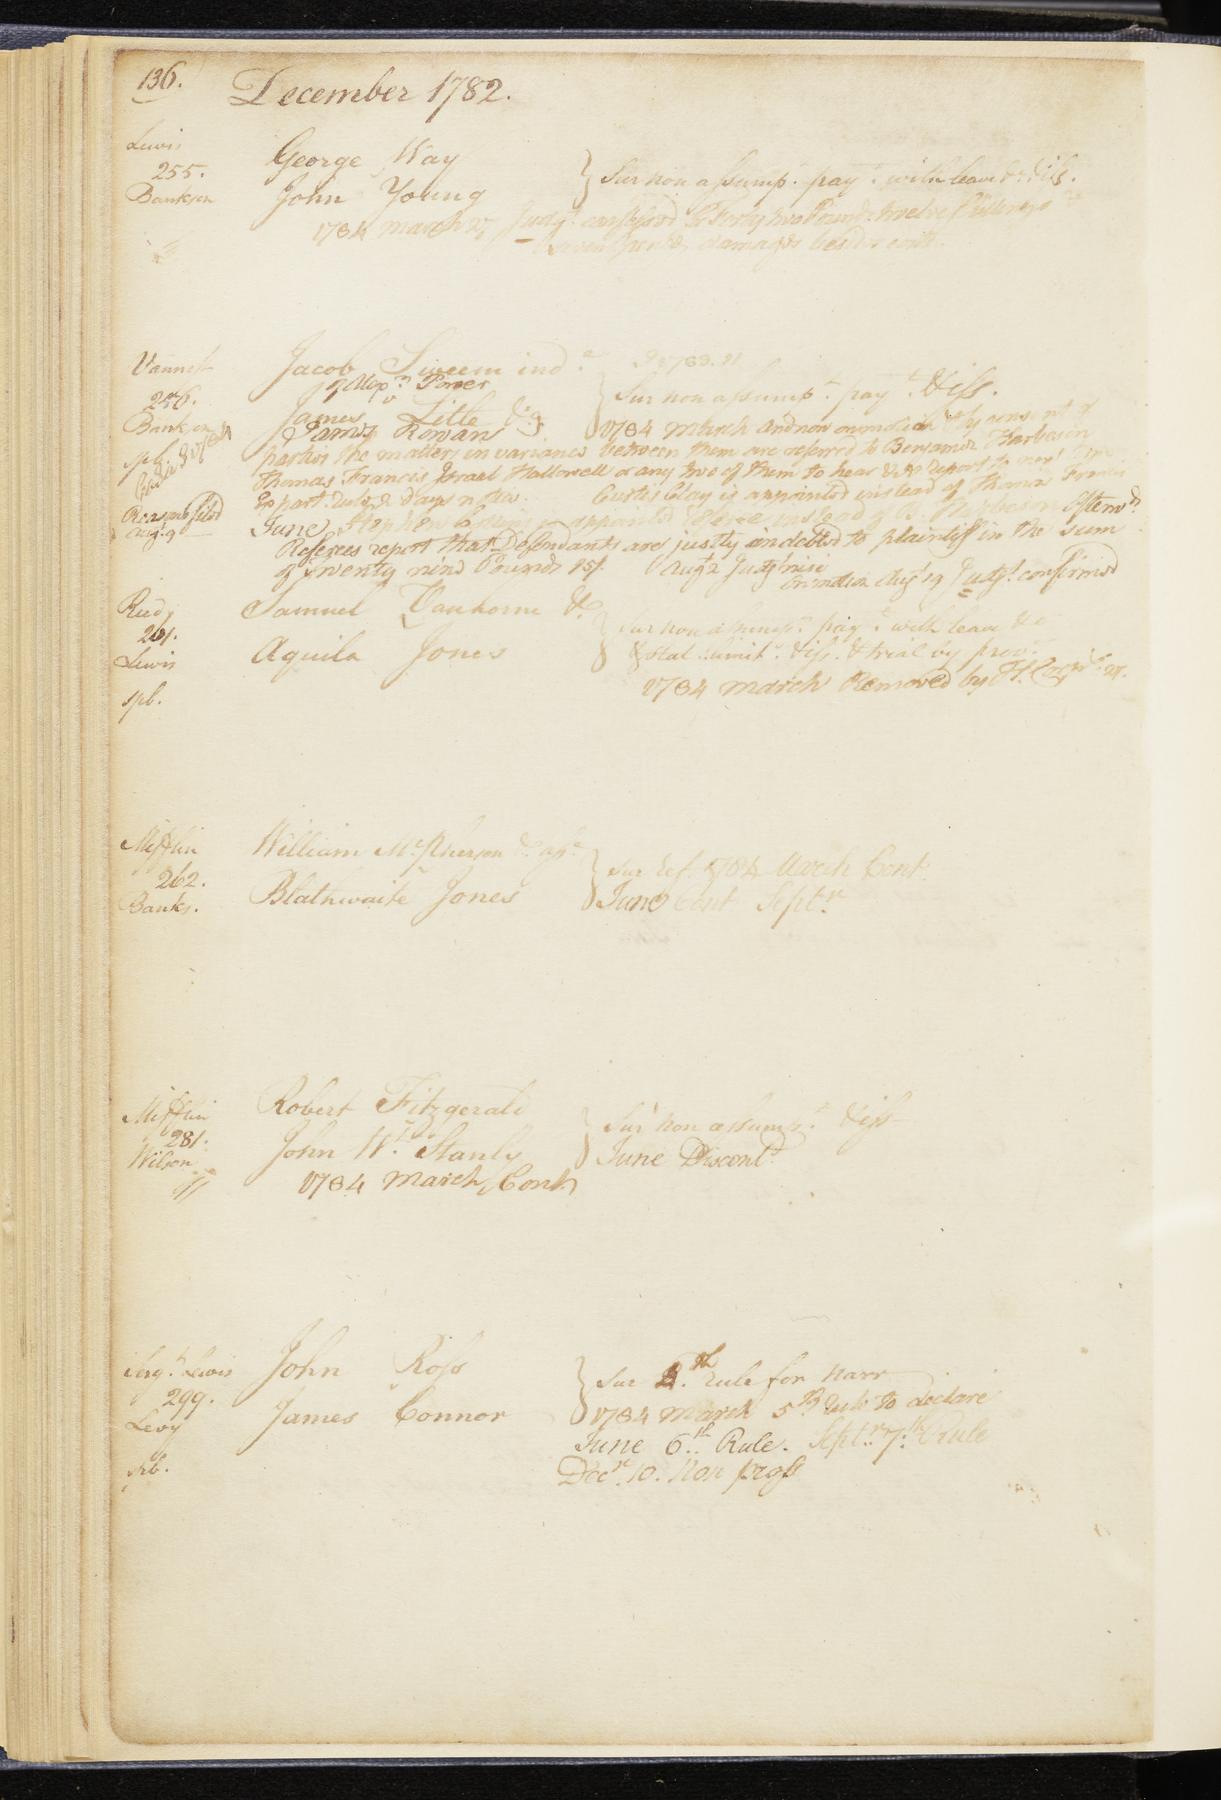 136.
December 1782.
Lewis
255.
Bankson
George Way
v
John Young
Sur non assumpt. paymt. with leave &c. & iss.
1784 March 27 Judgt. confessed for Forty two Pounds twelve shillings &
seven pence damages besides costs.
Vannost
256.
Bankson
spl.
Reasons filed
Augt. 9
Jacob Sweem ind.e
of Alexr. Power
v
James Little &
James Rowan
Sur non assumpt. paymt. & iss.
1784 March And now on motion & by consent of
parties the matters in variance between them are referred to Benjamin Harbeson
Thomas Francis Israel Hallowell or any two of them to hear &c. & report to next Term
Ex parte Rule 2 days notice. Curtis Clay is appointed instead of Thomas Francis
June, Stephen Collins is appointed referee instead of Harbeson Afterwds.
Referees report that Defendants are justly indebted to plaintiff in the sum
of twenty nine Pounds 15/. Augt. 2 Judgt. nisi
on motion Augt. 19 Judgt. confirmed
Ready
261.
Lewis
spl.
Samuel Vanhorne &c.
v
Aquila Jones
Sur non assumpt. paymt. with leave &c.
& Stat. limitn. & iss. & trial by prov.
1784 March Removed by H. Corps. 24.
Mifflin
262.
Banks.
William McPherson &c. asse.
v
Blathwaite Jones
Sur ref. 1784 March Cont.
June Cont Septr.
Mifflin
281.
Wilson
Robert Fitzgerald
v
John Wt. Stanly
Sur non assumpt. & iss
June Discontd.
1784 March, Cont
Sergt. & Lewis
299.
Levy
spl.
John Ross
v
James Connor
Sur 4.th rule for narr
1784 March 5th Rule to declare
June 6.th Rule. Septr. 7.th Rule
Decr. 10. Non pross